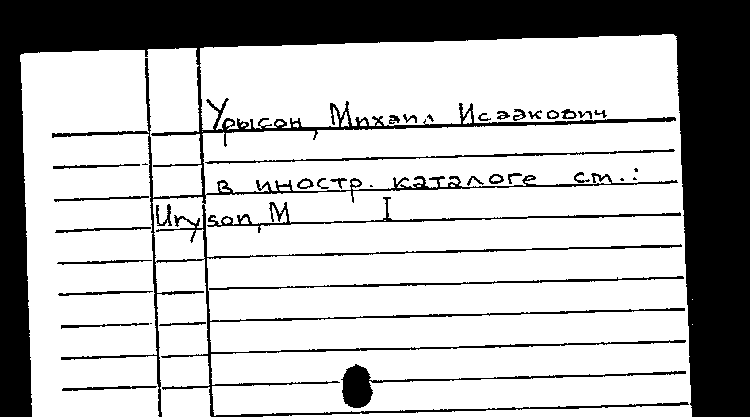 Урысон, Михаил Исаакович
в иностр. каталоге см.:
Uryson, M I